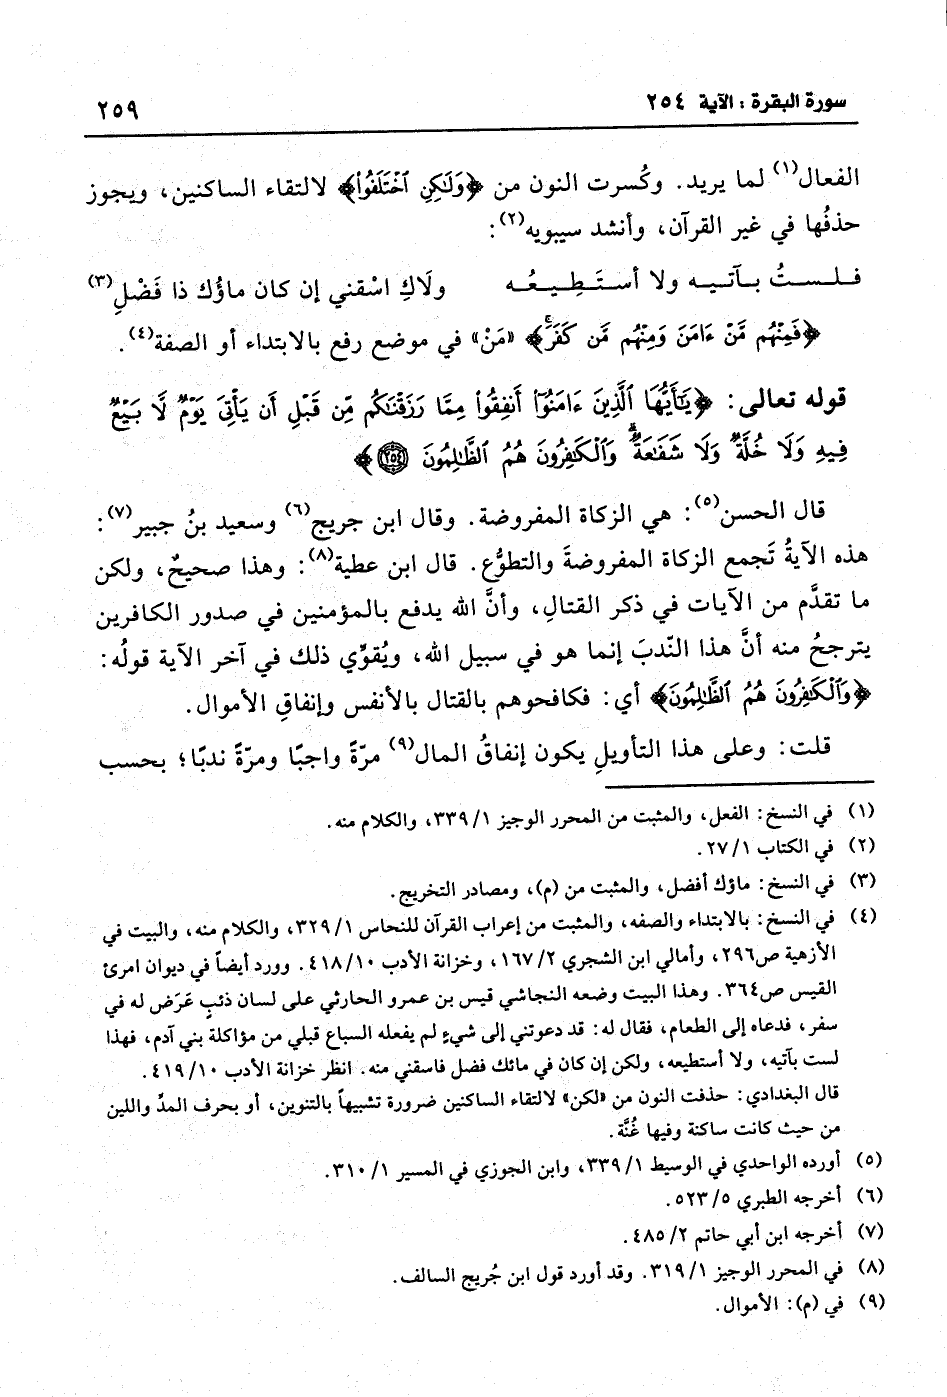 سورة البقرة : الآية ٢٥٤
٢٥٩
الفعال(١) لما يريد. وكُسرت النون من ﴿وَلَٰكِنِ ٱخْتَلَفُوا۟﴾ لالتقاء الساكنين، ويجوز
حذفُها في غير القرآن، وأنشد سيبويه(٢):
فلستُ بآتيه ولا أستَطِيعُه ولَاكِ اسْقني إن كان ماؤُك ذا فَضْلِ(٣)
﴿فَمِنْهُم مَّنْ ءَامَنَ وَمِنْهُم مَّن كَفَرَۚ﴾ «مَنْ» في موضع رفع بالابتداء أو الصفة(٤).
قوله تعالى: ﴿يَٰٓأَيُّهَا ٱلَّذِينَ ءَامَنُوٓا۟ أَنفِقُوا۟ مِمَّا رَزَقْنَٰكُم مِّن قَبْلِ أَن يَأْتِىَ يَوْمٌ لَّا بَيْعٌ
فِيهِ وَلَا خُلَّةٌ وَلَا شَفَٰعَةٌۗ وَٱلْكَٰفِرُونَ هُمُ ٱلظَّٰلِمُونَ ٢٥٤﴾
قال الحسن(٥): هي الزكاة المفروضة. وقال ابن جريج(٦) وسعيد بنُ جبير(٧):
هذه الآيةُ تَجمع الزكاة المفروضةَ والتطوُّع. قال ابن عطية(٨): وهذا صحيحٌ، ولكن
ما تقدَّم من الآيات في ذكر القتالِ، وأنَّ الله يدفع بالمؤمنين في صدور الكافرين
يترجحُ منه أنَّ هذا النّدبَ إنما هو في سبيل الله، ويُقوِّي ذلك في آخر الآية قولُه:
﴿وَٱلْكَٰفِرُونَ هُمُ ٱلظَّٰلِمُونَ﴾ أي: فكافحوهم بالقتال بالأنفس وإنفاقِ الأموال.
قلت: وعلى هذا التأويلِ يكون إنفاقُ المال(٩) مرّةً واجبًا ومرّةً ندبًا؛ بحسب
(١) في النسخ: الفعل، والمثبت من المحرر الوجيز ٣٣٩/١، والكلام منه.
(٢) في الكتاب ٢٧/١.
(٣) في النسخ: ماؤك أفضل، والمثبت من (م)، ومصادر التخريج.
(٤) في النسخ: بالابتداء والصفه، والمثبت من إعراب القرآن للنحاس ٣٢٩/١، والكلام منه، والبيت في
الأزهية ص٢٩٦، وأمالي ابن الشجري ١٦٧/٢، وخزانة الأدب ٤١٨/١٠. وورد أيضاً في ديوان امرئ
القيس ص٣٦٤. وهذا البيت وضعه النجاشي قيس بن عمرو الحارثي على لسان ذئبٍ عَرَض له في
سفر، فدعاه إلى الطعام، فقال له: قد دعوتني إلى شيءٍ لم يفعله السباع قبلي من مؤاكلة بني آدم، فهذا
لست بآتيه، ولا أستطيعه، ولكن إن كان في مائك فضل فاسقني منه. انظر خزانة الأدب ٤١٩/١٠.
قال البغدادي: حذفت النون من «لكن» لالتقاء الساكنين ضرورة تشبيهاً بالتنوين، أو بحرف المدِّ واللين
من حيث كانت ساكنة وفيها غُنَّة.
(٥) أورده الواحدي في الوسيط ٣٣٩/١، وابن الجوزي في المسير ٣١٠/١.
(٦) أخرجه الطبري ٥٢٣/٥.
(٧) أخرجه ابن أبي حاتم ٤٨٥/٢.
(٨) في المحرر الوجيز ٣١٩/١. وقد أورد قول ابن جُريج السالف.
(٩) في (م): الأموال.